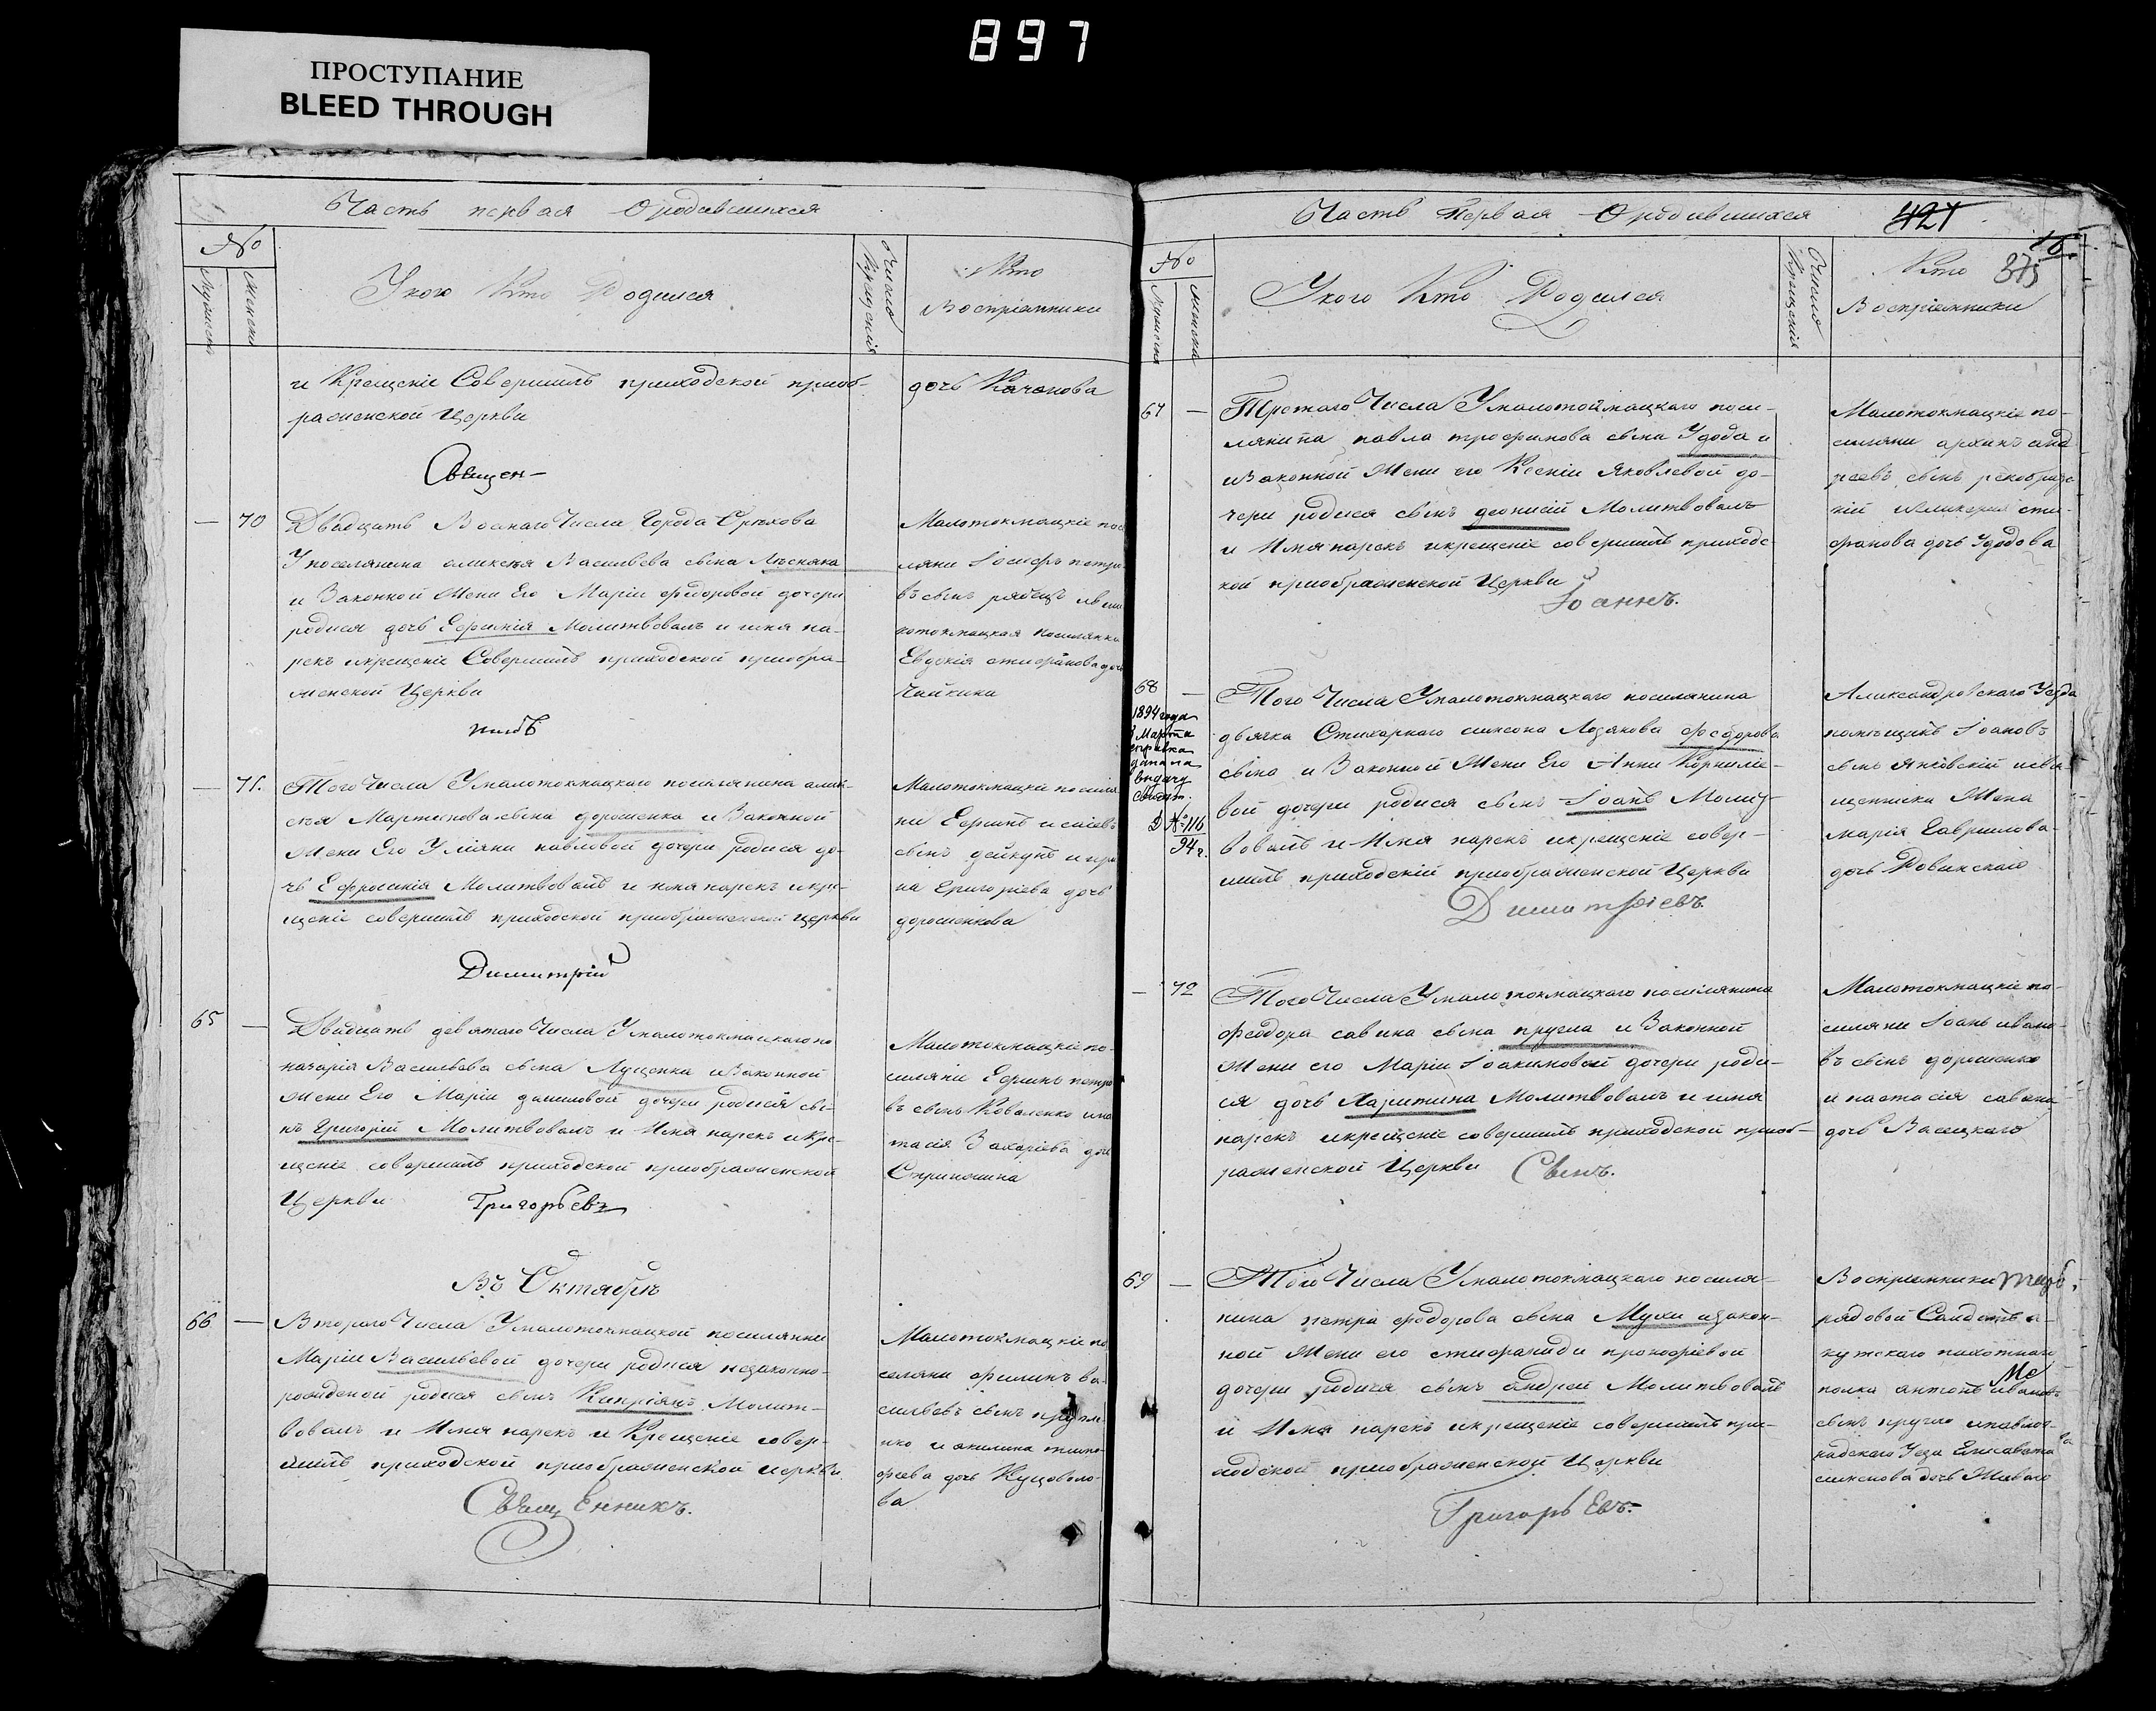 897
ПРОСТУПАНИЕ
BLEED THROUGH
Часть первая О родившихся
№
Мужеска
Женска
У кого Кто Родился
Число Крещения
Кто
Воспріемники
и Крещеніе Совершилъ приходской приоб-
раженской Церкви
дочь Качанова
Священ-
— 70
Двадцать Восмаго Числа Города Орѣхова
У поселянина аликсѣя Васильева сына Лѣсняка
и Законной Жени Его Маріи федоровой дочери
родися дочь Ефимія Молитвовалъ и имя на-
рекъ икрещеніе Совершилъ приходской приобра-
женской Церкви
Малотокмацкіе пос
ляни Іосифъ петро
въ сынъ
лотокмацкая поселянка
Евдокія стифанова доч
Чайкина
тотъ
— 71.
Того Числа У малотокмацкого поселянина алик-
сѣя Мартинова сына дорошенка и Законной
Жени Его Уліяни павловой дочери родися до-
чь Ефросинія Молитвовалъ и имя нарекъ и кре-
щеніе совершилъ приходской приображенской церкви
Малотокмацкіе поселя
ни Ефимъ исаіевъ
сынъ дейкунъ и ири
на Григоріева дочь
дорошенкова
Димитрій
65 —
Двадцать девятаго Числа У малотокмацкаго по
Васильева сына Луценка и Законной
Жени Его Маріи даниловой дочери родися сы-
нъ Григорій Молитвовалъ и Имя нарекъ и кре-
щеніе совершилъ приходской приображенской
Церкви Григорьевъ
Малотокмацкіе по-
силяни Ефимъ петро
въ сынъ Коваленко и на
тасія Захаріева доч
Въ Октябрѣ
66 —
Второго Числа У малотокмацкой поселянки
Маріи Васильевой дочери родися незаконно-
рожденой родися сынъ Кипріянъ Молит-
вовалъ и Имя нарекъ и Крещеніе совер-
шилъ приходской приображенской церкви
Священникъ.
Малотокмацкіе по
селяни филипъ ва-
сильевъ сынъ
нко и акилина тимо-
феева дочь Куцоволо-
ва
Часть Первая О родившихся
421
375
№
Мужеска
Женска
У кого Кто Родился
Число Крещенія
Кто
Воспріемники
67 —
Третаго Числа У малотокмацкаго посе-
лянина павла трофимова сына Удода и
и Законной Жени его Ксеніи Яковлевой до-
чери родися сынъ деонисій Молитвовалъ
и Имя нарекъ икрещеніе совершилъ приходс-
кой приображенской Церкви
Іоаннъ.
Малотокмацкіе по-
силяни архипъ анд
реевъ сынъ
кій и гликерия сти-
фанова дочь Удодова
68 —
1894 года
Марта
справка
дана на
выдачу
Свидѣт.
Д №116
94 г.
Того Числа У малотокмацкаго поселянина
дьячка Стихарного симеона Лодякова федорова
сына и Законной Жени Его Анни Корниліе-
вой дочери родися сынъ Іоанъ Молит-
вовалъ и Имя нарекъ икрещеніе совер-
шилъ приходскій приображенской Церкви
Димитріевъ.
Александровского Уезда
помѣщикъ Іоановъ
сынъ Янковскій исвя-
щенника Жена
марія Гаврилова
дочь Ровинская
— 72
Того Числа У малотокмацкаго поселянина
феодора савина сына пругла и Законной
Жени его Маріи Іоакимовой дочери роди-
ся дочь Харитина Молитвовалъ и имя
нарекъ икрещеніе совершилъ приходской приоб-
раженской Церкви Свящ.
Малотокмацкіе по-
силяни Іоанъ ивано-
въ сынъ дорошенко
и настасія савина
дочь Васецкаго
69 —
Того Числа У малотокмацкаго поселя-
нина петра федорова сына Мухи изакон-
ной Жени его стифаниди прокофіевой
дочери родися сынъ андрей Молитвовалъ
и Имя нарекъ икрещеніе совершилъ при-
ходской приображенской Церкви
Григорьевъ.
Воспріемники
рядовой Салдатъ я-
кутского пихотнаго
полка антонъ ивановъ
сынъ пругло ипавло-
градского Уезда Елисавета
симонова дочь Живаго